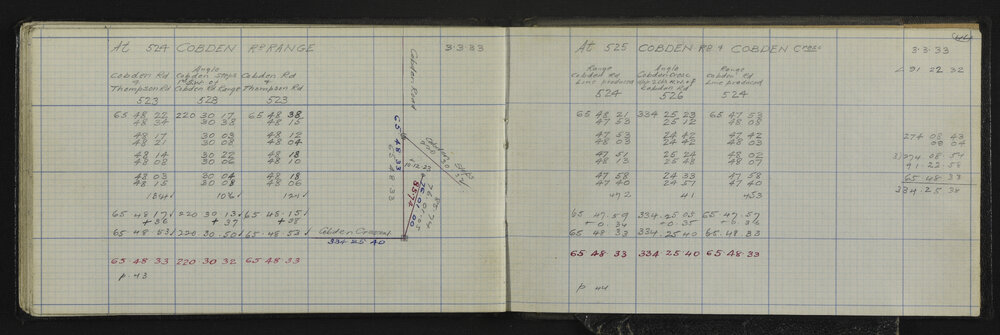 At 524 COBDEN RD RANGE 3.3.33
Cobden Rd Angle Cobden Rd
& Cobden Steps &
Thompson Rd Cobden Rd Range Thompson Rd
523 528 523
65 48 22 220 30 17 65 48 38
48 34 30 38 48 15
48 17 30 09 48 12
48 21 30 08 48 04
48 14 30 22 48 18
48 02 30 02 48 10
48 03 30 04 48 18
48 15 30 08 48 06
65 48 17 220 30 13 65 48 15
+ 36 + 37 + 38
65 48 53 220.30.50 65.48.53
65.48.33 220 30 32 65 48.33
p. 43
Cobden Road
65 48 33
65 48 33
Cobden Steps
Cobden Crescent
334 25 40
At 525 COBDEN RD & COBDEN CRES 3.3.33
Range Angle Range
Cobden Rd Cobden Cresc Cobden Rd
Line produced Cobden Rd Line produced
524 526 524
65 48 21 334 25 23 65 47 53
47 53 25 12 48 08
47 53 24 42 47 42
48 03 24 42 48 03
47 51 25 24 48 02
48 13 25 48 48 07
47 58 24 33 47 58
47 40 24 57 47 40
472 41 453
65 47.59 334.25.05 65 47.57
+0.34 +0.35 +0.36
65 48 33 334.25 40 65.48.33
65.48.33 334 25 40 65.48.33
p 44
91 22 32
274 08 43
09 04
3)274 08.54
91 22 58
65.48.33
334.25 38